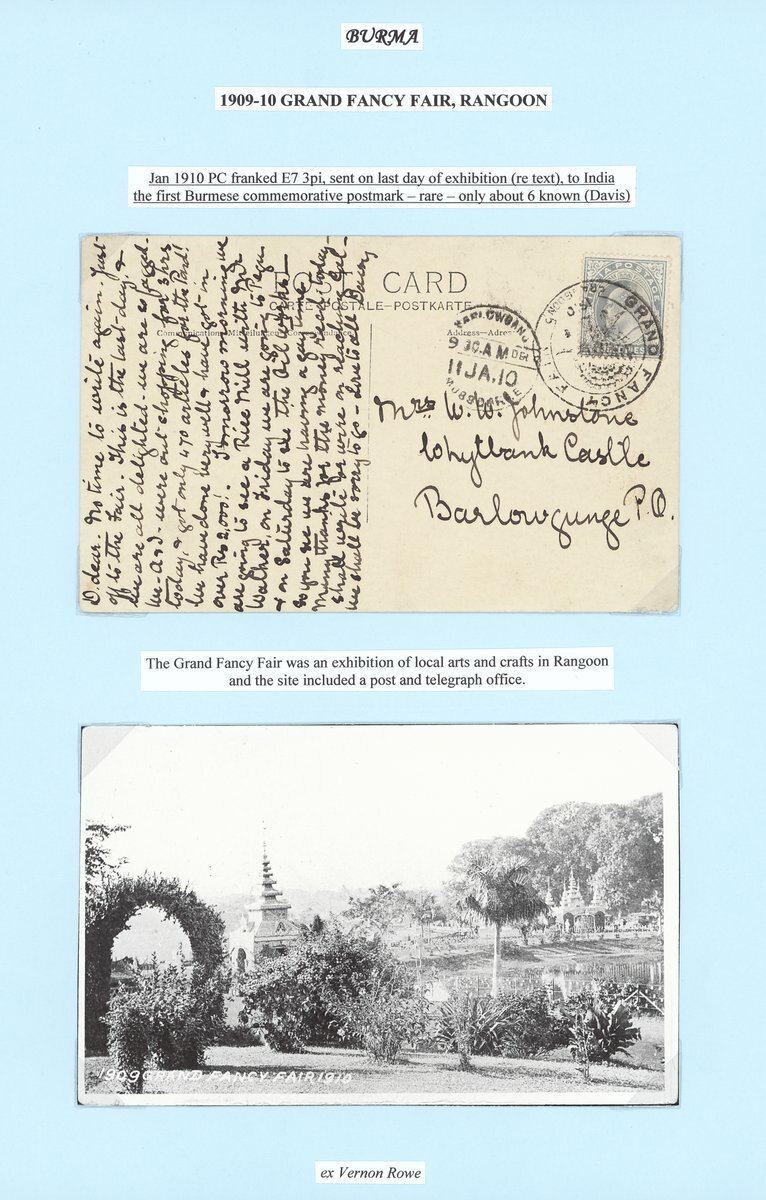 BURMA
1909-10 GRAND FANCY FAIR, RANGOON
Jan 1910 PC franked E7 3pi, sent on last day of exhibition (re text), to India
the first Burmese commemorative postmark – rare – only about 6 known (Davis)
POST CARD
CARTE-POSTALE–POSTKARTE
Address–Adre
GRAND FANCY FAIR
9.30.A.M DEL
11JA.10
Mrs W. W. Johnstone
Whytbank Castle
Barlowgunge P.O.
O. dear. No time to write again. Just
off to the Fair. This is the last day, &
we are all delighted - we are so fagged.
were out shopping for 3 hrs
today, & got only 470 articles for the Pand!
We have done very well & have got in
over Rs 2,000! . Tomorrow morning we
are going to see a Rice Mill with
on Friday we are going to Pegu
& on Saturday to see the Oil Works -
So you see we are having a gay time
Many thanks for the money recd today -
shall write for more on reaching Cal-
We shall be sorry to go - Love to all
The Grand Fancy Fair was an exhibition of local arts and crafts in Rangoon
and the site included a post and telegraph office.
1909 GRAND FANCY FAIR 1910
ex Vernon Rowe